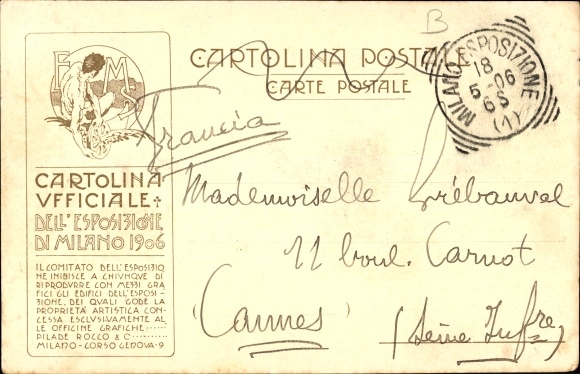 B
CARTOLINA POSTALE
CARTE POSTALE
MILANO ESPOSIZIONE
18
5-06
6S
(1)
E M
Francia
CARTOLINA
VFFICIALE
DELL'ESPOSIZIONE
DI MILANO 1906
IL COMITATO DELL'ESPOSIZIO
NE INIBISCE A CHIVNQVE DI
RIPRODVRRE CON MEZZI GRA
FICI GLI EDIFICI DELL'ESPOSI-
ZIONE, DEI QVALI GODE LA
PROPRIETÀ ARTISTICA CON-
CESSA ESCLVSIVAMENTE AL
LE OFFICINE GRAFICHE
PILADE ROCCO & C
MILANO-CORSO GENOVA-9
Mademoiselle Grébauval
11 boul. Carnot
Cannes
(Seine Infre)